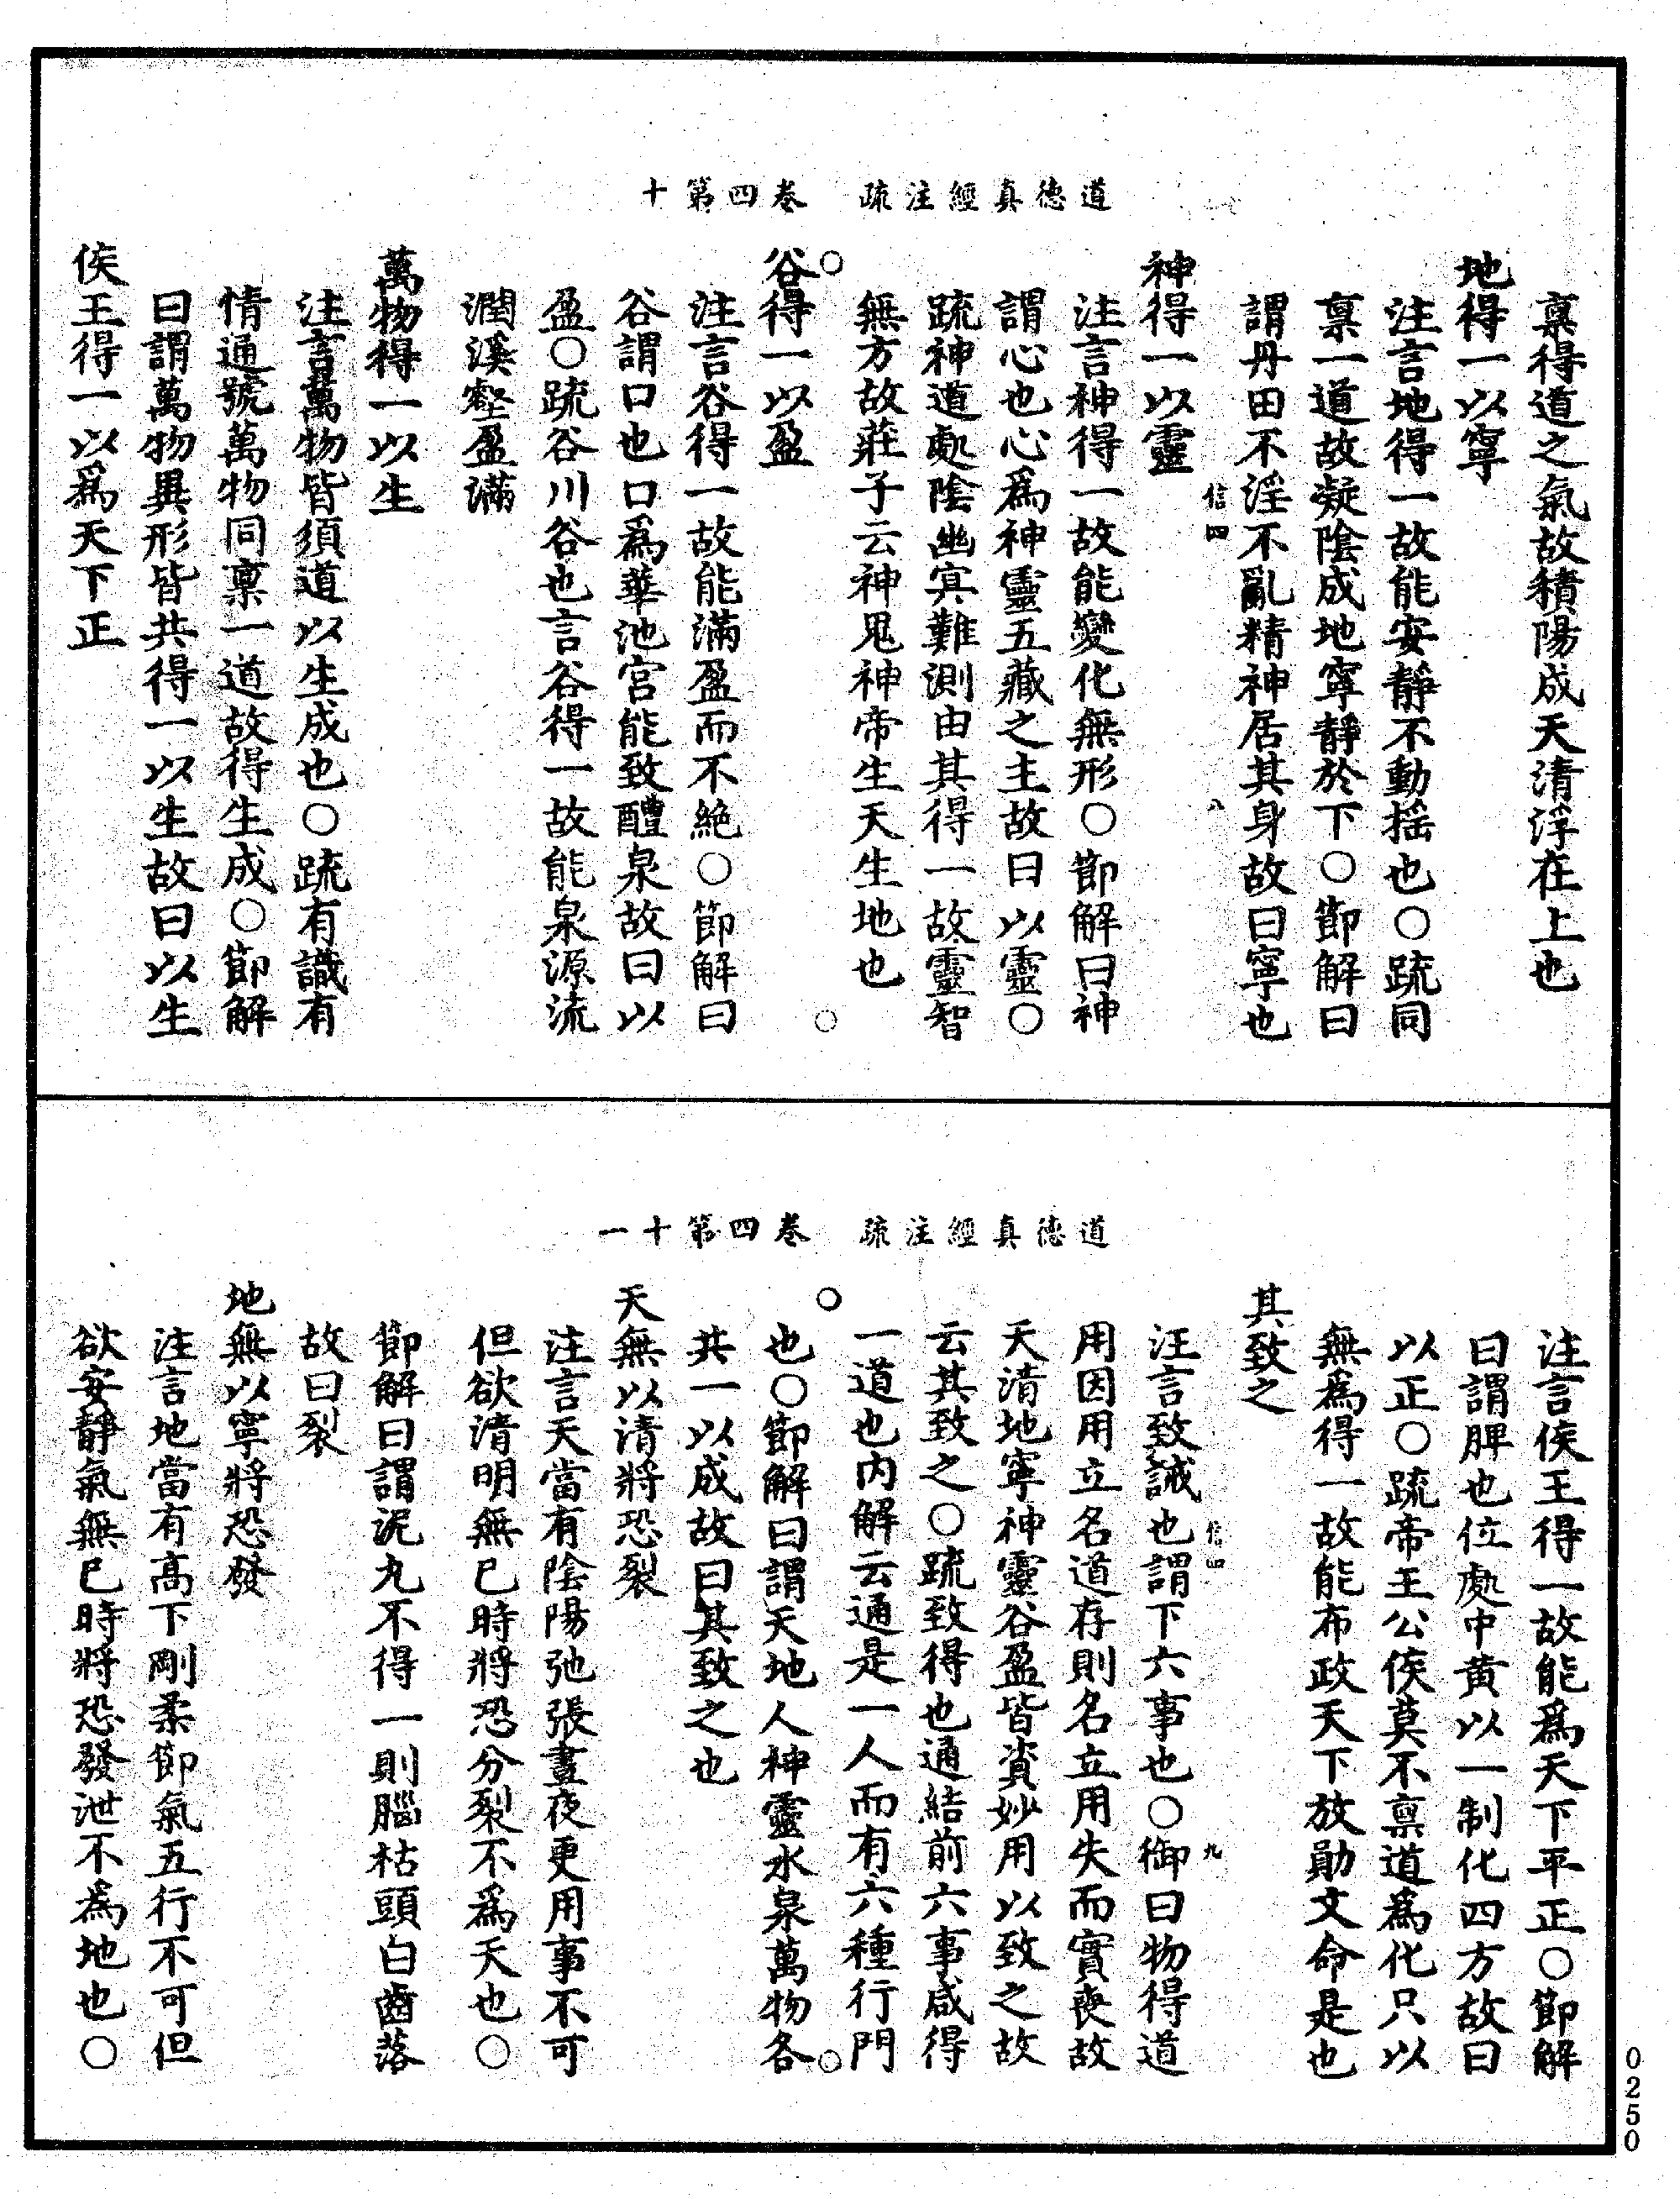 道德真經注疏　卷四第十
稟得道之氣故積陽成天清浮在上也
地得一以寧
注言地得一故能安靜不動搖也○疏同
稟一道故凝陰成地寧靜於下○節解曰
謂丹田不淫不亂精神居其身故曰寧也
信四　八
神得一以靈
注言神得一故能變化無形○節解曰神
謂心也心爲神靈五藏之主故曰以靈○
疏神道處陰幽寘難測由其得一故靈智
無方故莊子云神鬼神帝生天生地也
谷得一以盈
注言谷得一故能滿盈而不絶○節解曰
谷謂口也口爲華池宮能致醴泉故曰以
盈○疏谷川谷也言谷得一故能泉源流
潤溪壑盈滿
萬物得一以生
注言萬物皆須道以生成也○疏有識有
情通號萬物同稟一道故得生成○節解
曰謂萬物異形皆共得一以生故曰以生
侯王得一以爲天下正
道德真經注疏　卷四第十一
注言侯王得一故能爲天下平正○節解
曰謂脾也位處中黃以一制化四方故曰
以正○疏帝王公侯莫不稟道爲化只以
無爲得一故能布政天下放勛文命是也
其致之
信四　九
汪言致誡也謂下六事也○御曰物得道
用因用立名道存則名立用失而實喪故
天清地寧神靈谷盈皆資妙用以致之故
云其致之○疏致得也通結前六事咸得
一道也内解云通是一人而有六種行門
也○節解曰謂天地人神靈水泉萬物各
共一以成故曰其致之也
天無以清將恐裂
注言天當有陰陽弛張晝夜更用事不可
但欲清明無已時將恐分裂不爲天也○
節解曰謂泥丸不得一則腦枯頭白齒落
故曰裂
地無以寧將恐發
注言地當有高下剛柔節氣五行不可但
欲安靜氣無已時將恐發泄不爲地也○
0250